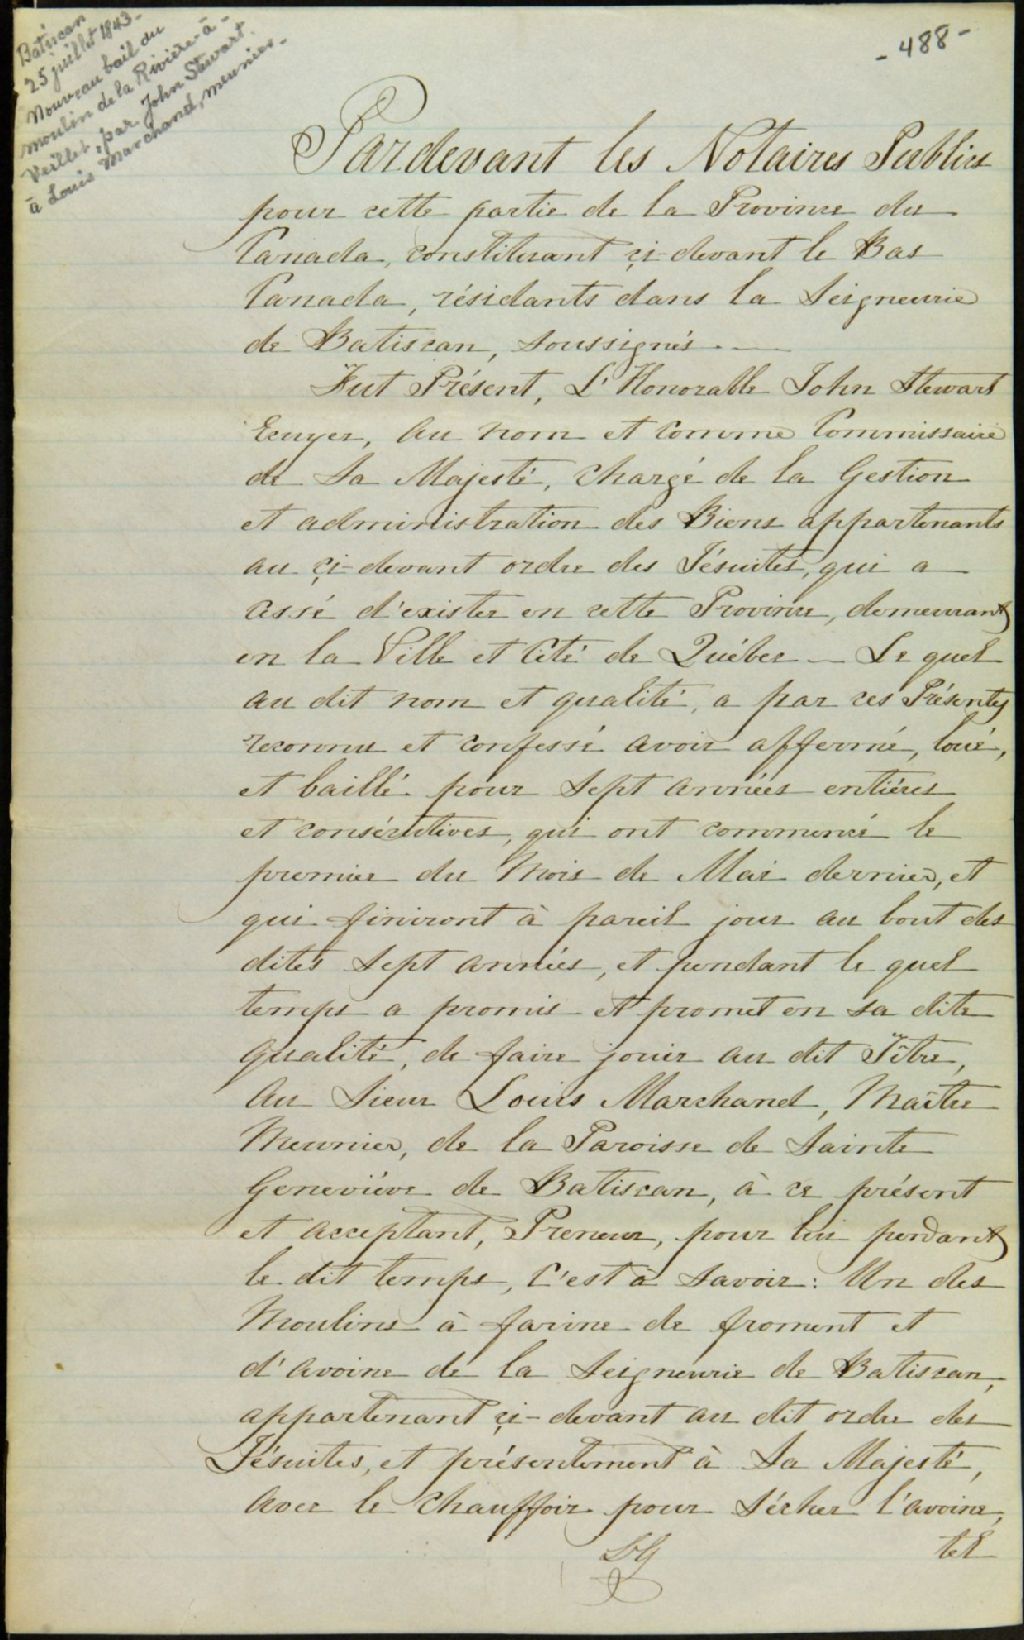 Batiscan
25 juillet 1843-
Nouveau bail du
moulin de la Rivière-à-
Veillet, par John Stewart
à Louis Marchand, meunier-
-488-
Pardevant les Notaires Publics
pour cette partie de la Province du
Canada, constituant çi-devant le Bas
Canada, résidants dans la Seigneurie
de Batiscan, soussignés.—
Fut Présent, L'Honorable John Stewart
Ecuyer, au nom et comme Commissaire
de Sa Majesté, chargé de la Gestion
et administration des Biens appartenants
au çi-devant ordre des Jésuites, qui a
cessé d'exister en cette Province, demeurant
en la Ville et Cité de Québec — Le quel
au dit nom et qualité, a par ces Présentes
reconnu et confessé avoir affermé, loué,
et baillé pour sept années entiéres
et consécutives, qui ont commencé le
premier du Mois de Mai dernier, et
qui finiront à pareil jour au bout des
dites sept années, et pendant le quel
temps a promis et promet en sa dite
qualité, de faire jouir au dit Titre,
au Sieur Louis Marchand, Maître
Meunier, de la Paroisse de Sainte
Geneviève de Batiscan, à ce présent
et acceptant, Preneur, pour lui pendant
le dit temps, C'est à savoir: Un des
Moulins à farine de froment et
d'avoine de la Seigneurie de Batiscan,
appartenant çi-devant au dit ordre des
Jésuites, et présentement à Sa Majesté,
avec le chauffoir pour sécher l'avoine,
tel